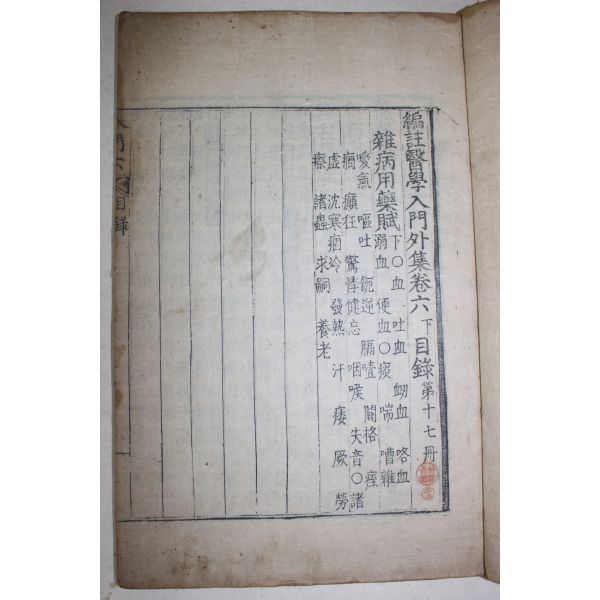 編註醫學入門外集卷六 下 目錄 第十七冊
雜病用藥賦 下○血 吐血 衂血 咯血
溺血 便血○痰 喘 嘈雜
噯氣 嘔吐 呃逆 膈噎 關格 痓
癎 癲狂 驚悸健忘 咽喉 失音○諸
虛 沈寒痼冷 發熱 汗 痿 厥 勞
瘵 諸蟲 求嗣 養老
入門六 目錄